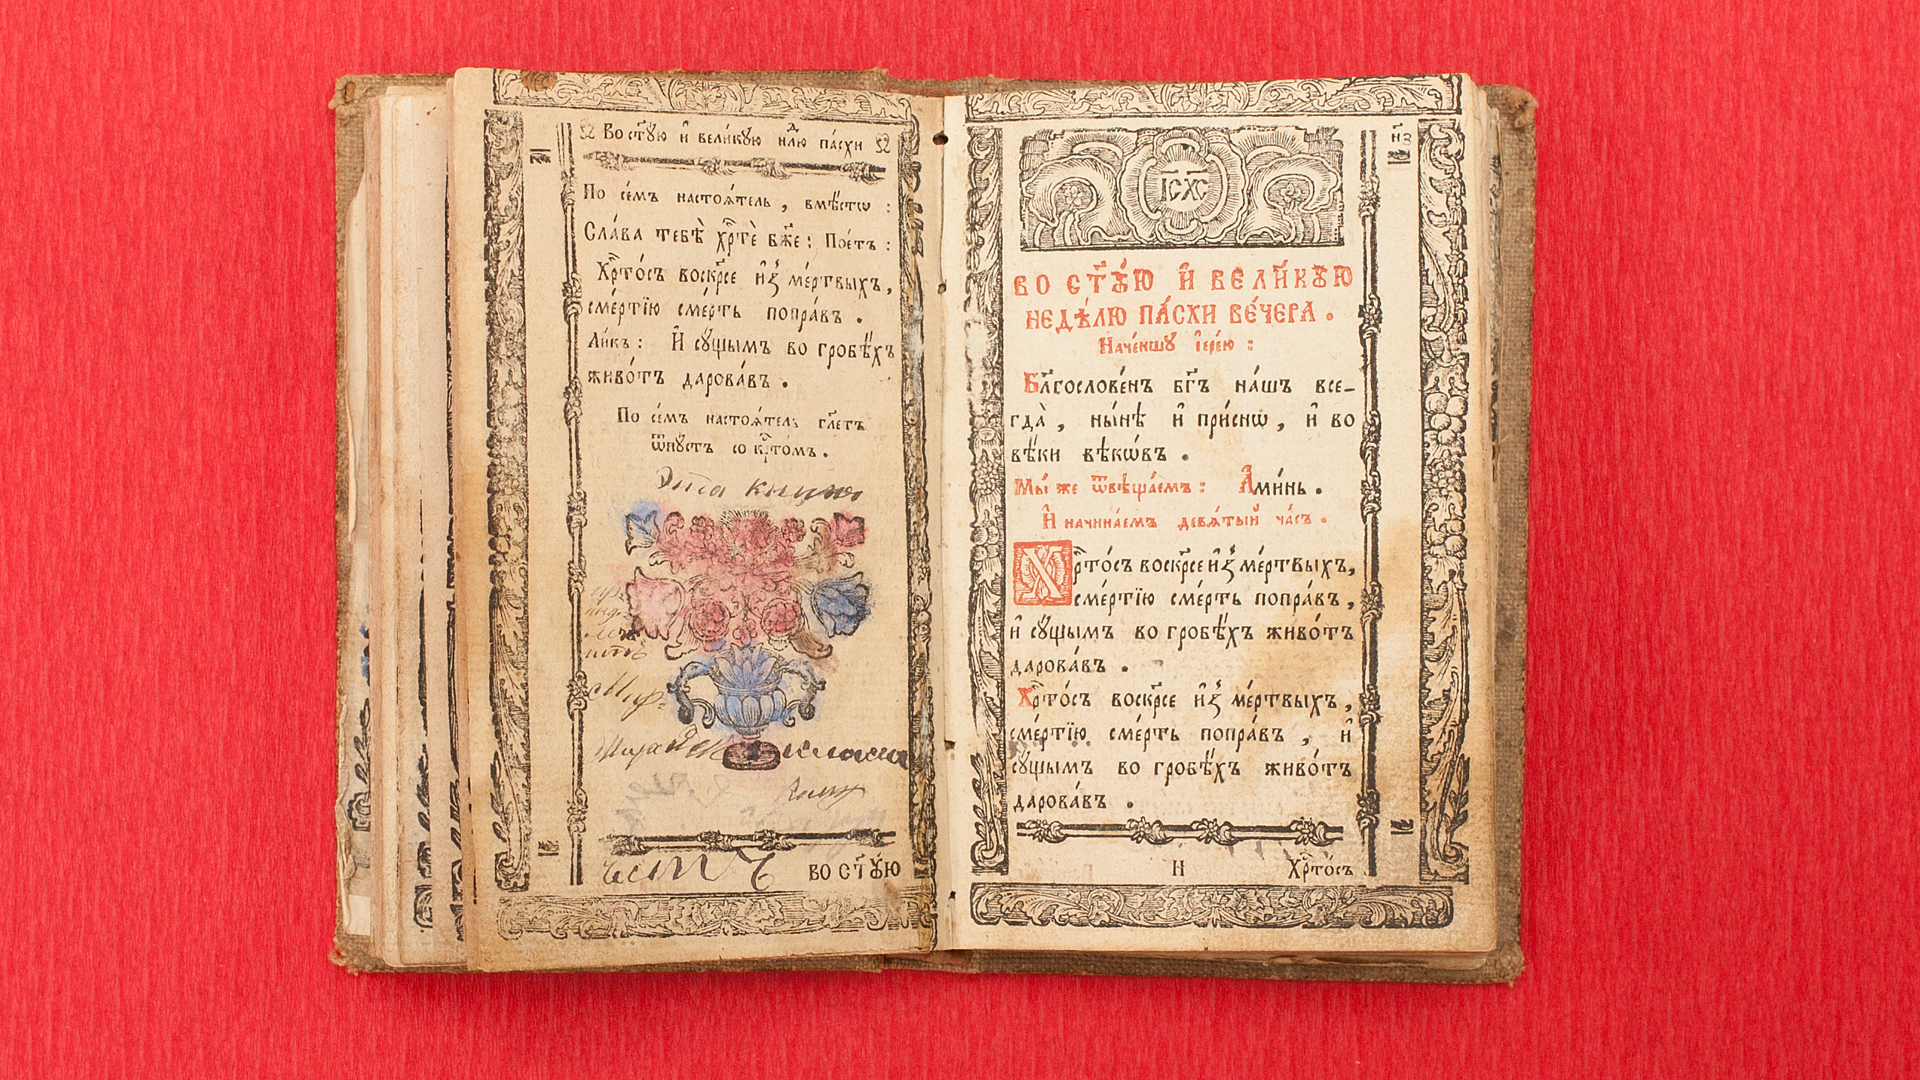 Во ст҃ꙋ́ю и҆ вели́кꙋю нⷣлю па́схи
По се́мъ настоѧ́тель , вмѣ́стѡ :
Сла́ва тебѣ̀ хрⷭ҇тѐ бж҃е : Пое́тъ :
Хрⷭ҇то́съ воскр҃се и҆з̾ ме́ртвыхъ ,
сме́ртїю сме́рть попра́въ .
Ли́къ : И҆ сꙋ́щымъ во гробѣ́хъ
живо́тъ дарова́въ .
По се́мъ настоѧ́тель гл҃етъ
ѿпꙋстъ со крⷭ҇то́мъ .
Эта книга
есть
во ст҃ꙋ́ю
н҃з
І҃С Х҃С
ВО СТ҃Ꙋ́Ю И҆ ВЕЛИ́КꙊЮ
НЕДѢ́ЛЮ ПА́СХИ ВЕ́ЧЕРА .
Наче́ншꙋ і҆ере́ю :
Блгⷭ҇ослове́нъ бг҃ъ на́шъ все-
гда̀ , ны́нѣ и҆ при́снѡ , и҆ во
вѣ́ки вѣкѡ́въ .
Мы́ же ѿвѣща́емъ : А҆ми́нь .
И҆ начина́емъ девѧ́тый ча́съ .
Хрⷭ҇то́съ воскр҃се и҆з̾ ме́ртвыхъ ,
сме́ртїю сме́рть попра́въ ,
и҆ сꙋ́щымъ во гробѣ́хъ живо́тъ
дарова́въ .
Хрⷭ҇то́съ воскр҃се и҆з̾ ме́ртвыхъ ,
сме́ртїю сме́рть попра́въ , и҆
сꙋ́щымъ во гробѣ́хъ живо́тъ
дарова́въ .
н Хрⷭ҇то́съ